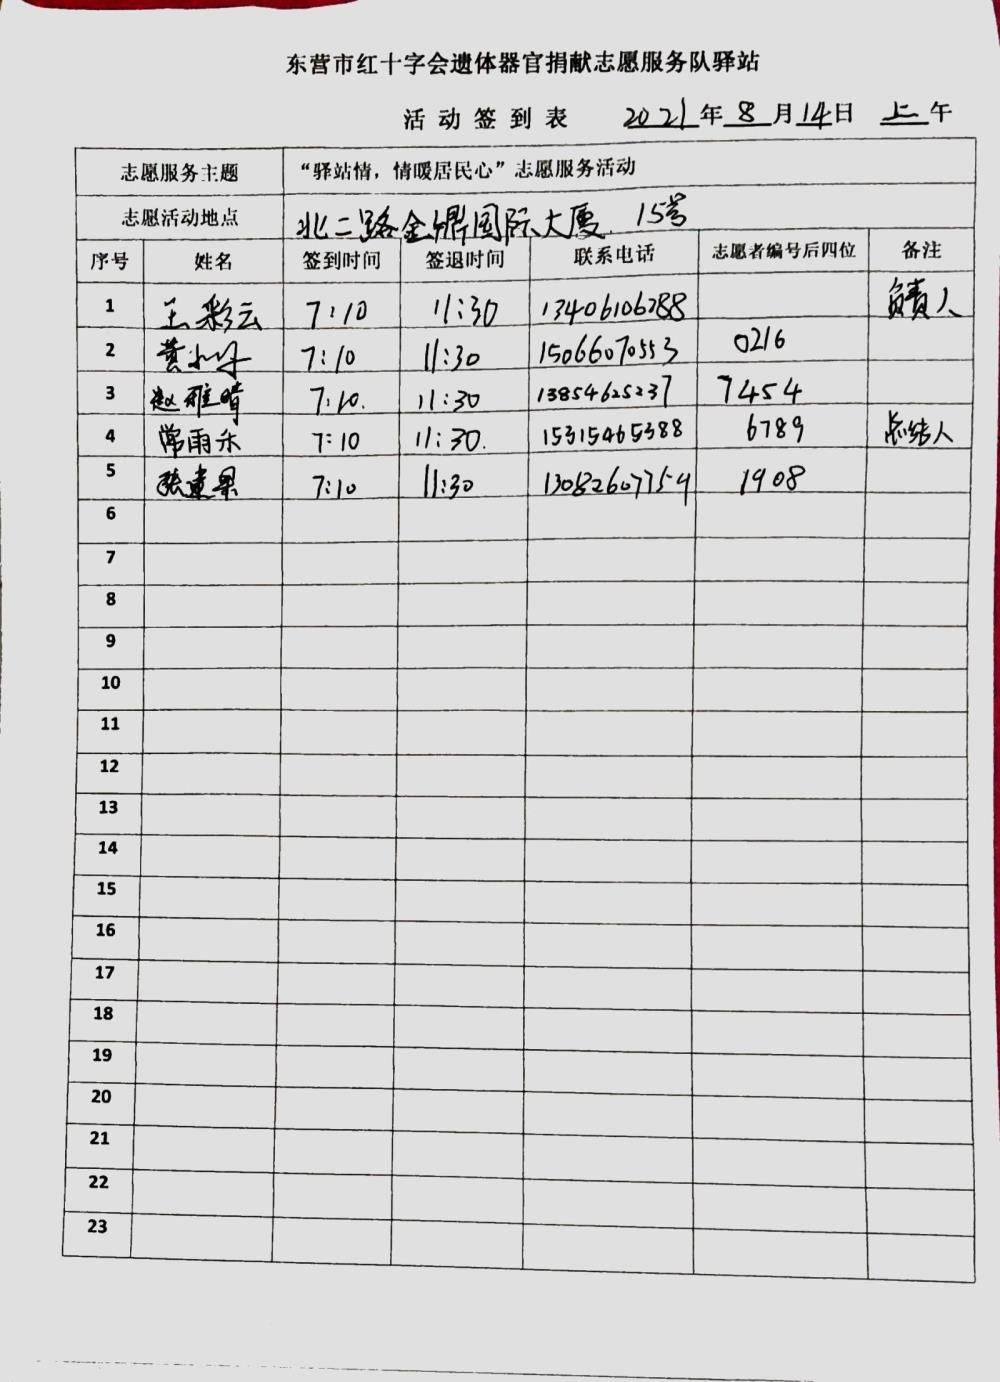 东营市红十字会遗体器官捐献志愿服务队驿站
活动签到表 2021年8月14日 上午
志愿服务主题 “驿站情，情暖居民心”志愿服务活动
志愿活动地点 北二路金鼎国际大厦 15号
序号 姓名 签到时间 签退时间 联系电话 志愿者编号后四位 备注
1 王彩云 7:10 11:30 13406106288 负责人
2 黄小 7:10 11:30 15066070553 0216
3 赵雅晴 7:10. 11:30 13854625237 7454
4 常雨乐 7:10 11:30. 15315465388 6789 总结人
5 张建 7:10 11:30 13082607754 1908
6
7
8
9
10
11
12
13
14
15
16
17
18
19
20
21
22
23